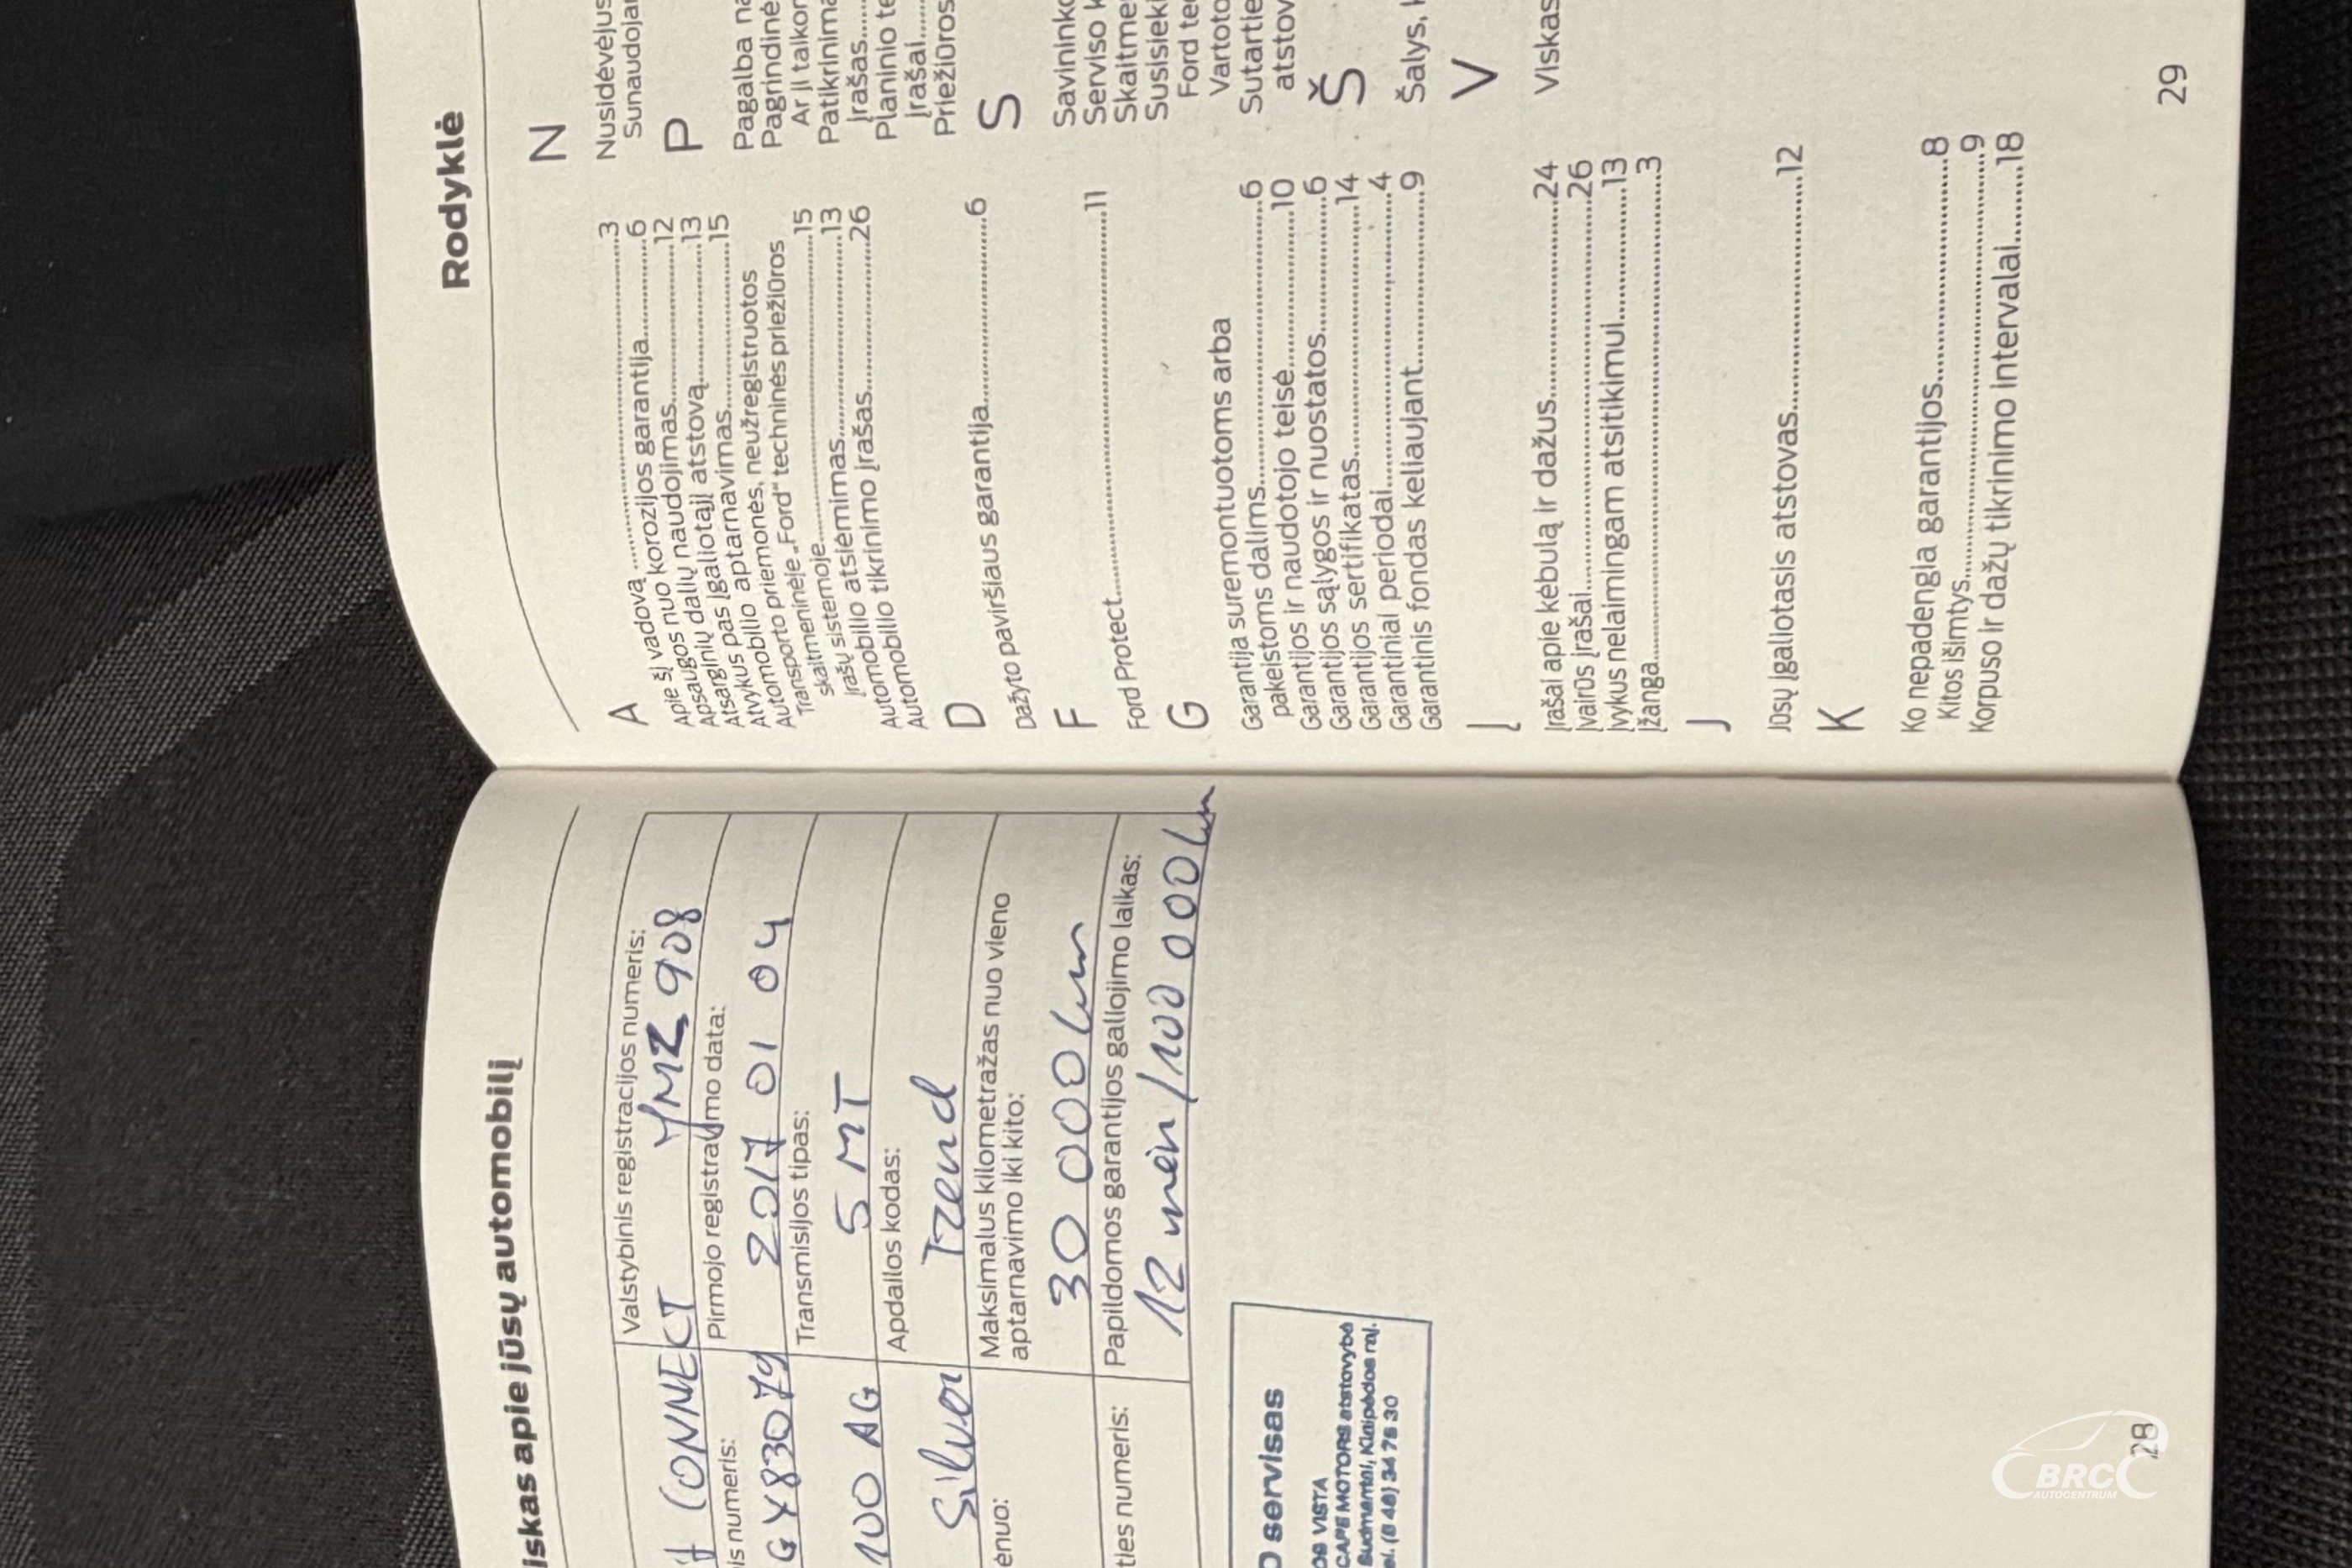 iskas apie jūsų automobilį
CONNECT
Valstybinis registracijos numeris:
YMZ 908
is numeris:
GY83079
Pirmojo registravimo data:
2017 01 04
100 AG
Transmisijos tipas:
5 MT
Silver
Apdailos kodas:
Trend
ėnuo:
Maksimalus kilometražas nuo vieno
aptarnavimo iki kito:
30 000 km
ties numeris:
Papildomos garantijos galiojimo laikas:
12 mėn/100 000 km
servisas
OS VISTA
CAPE MOTORS atstovybė
Sudmantai, Klaipėdos raj.
el. (8 46) 34 76 30
28
Rodyklė
A
Apie šį vadovą....3
Apsaugos nuo korozijos garantija....6
Atsarginių dalių naudojimas....12
Atvykus pas įgaliotąjį atstovą....13
Automobilio aptarnavimas....15
Automobilio priemonės, neužregistruotos
Transporto priemonės, neužregistruotos
skaitmeninėje „Ford“ techninės priežiūros
įrašų sistemoje....15
Automobilio atsiėmimas....13
Automobilio tikrinimo įrašas....26
D
Dažyto paviršiaus garantija....6
F
Ford Protect....11
G
Garantija suremontuotoms arba
pakeistoms dalims....6
Garantijos ir naudotojo teisė....10
Garantijos sąlygos ir nuostatos....6
Garantijos sertifikatas....14
Garantiniai periodai....4
Garantinis fondas keliaujant....9
Į
Įrašai apie kėbulą ir dažus....24
Įvairūs įrašai....26
Įvykus nelaimingam atsitikimui....13
Įžanga....3
J
Jūsų įgaliotasis atstovas....12
K
Ko nepadengia garantijos....8
Kitos išimtys....9
Korpuso ir dažų tikrinimo intervalai....18
N
Nusidėvėjus
Sunaudoja
P
Pagalba na
Pagrindinė
Ar ji taikon
Patikrinima
Įrašas....
Planinio te
Įrašai....
Priežiūros
S
Savininko
Serviso k
Skaitme
Susisieki
Ford te
Vartoto
Sutartie
atstov
Š
Šalys,
V
Viskas
29
BRC
AUTOCENTRUM